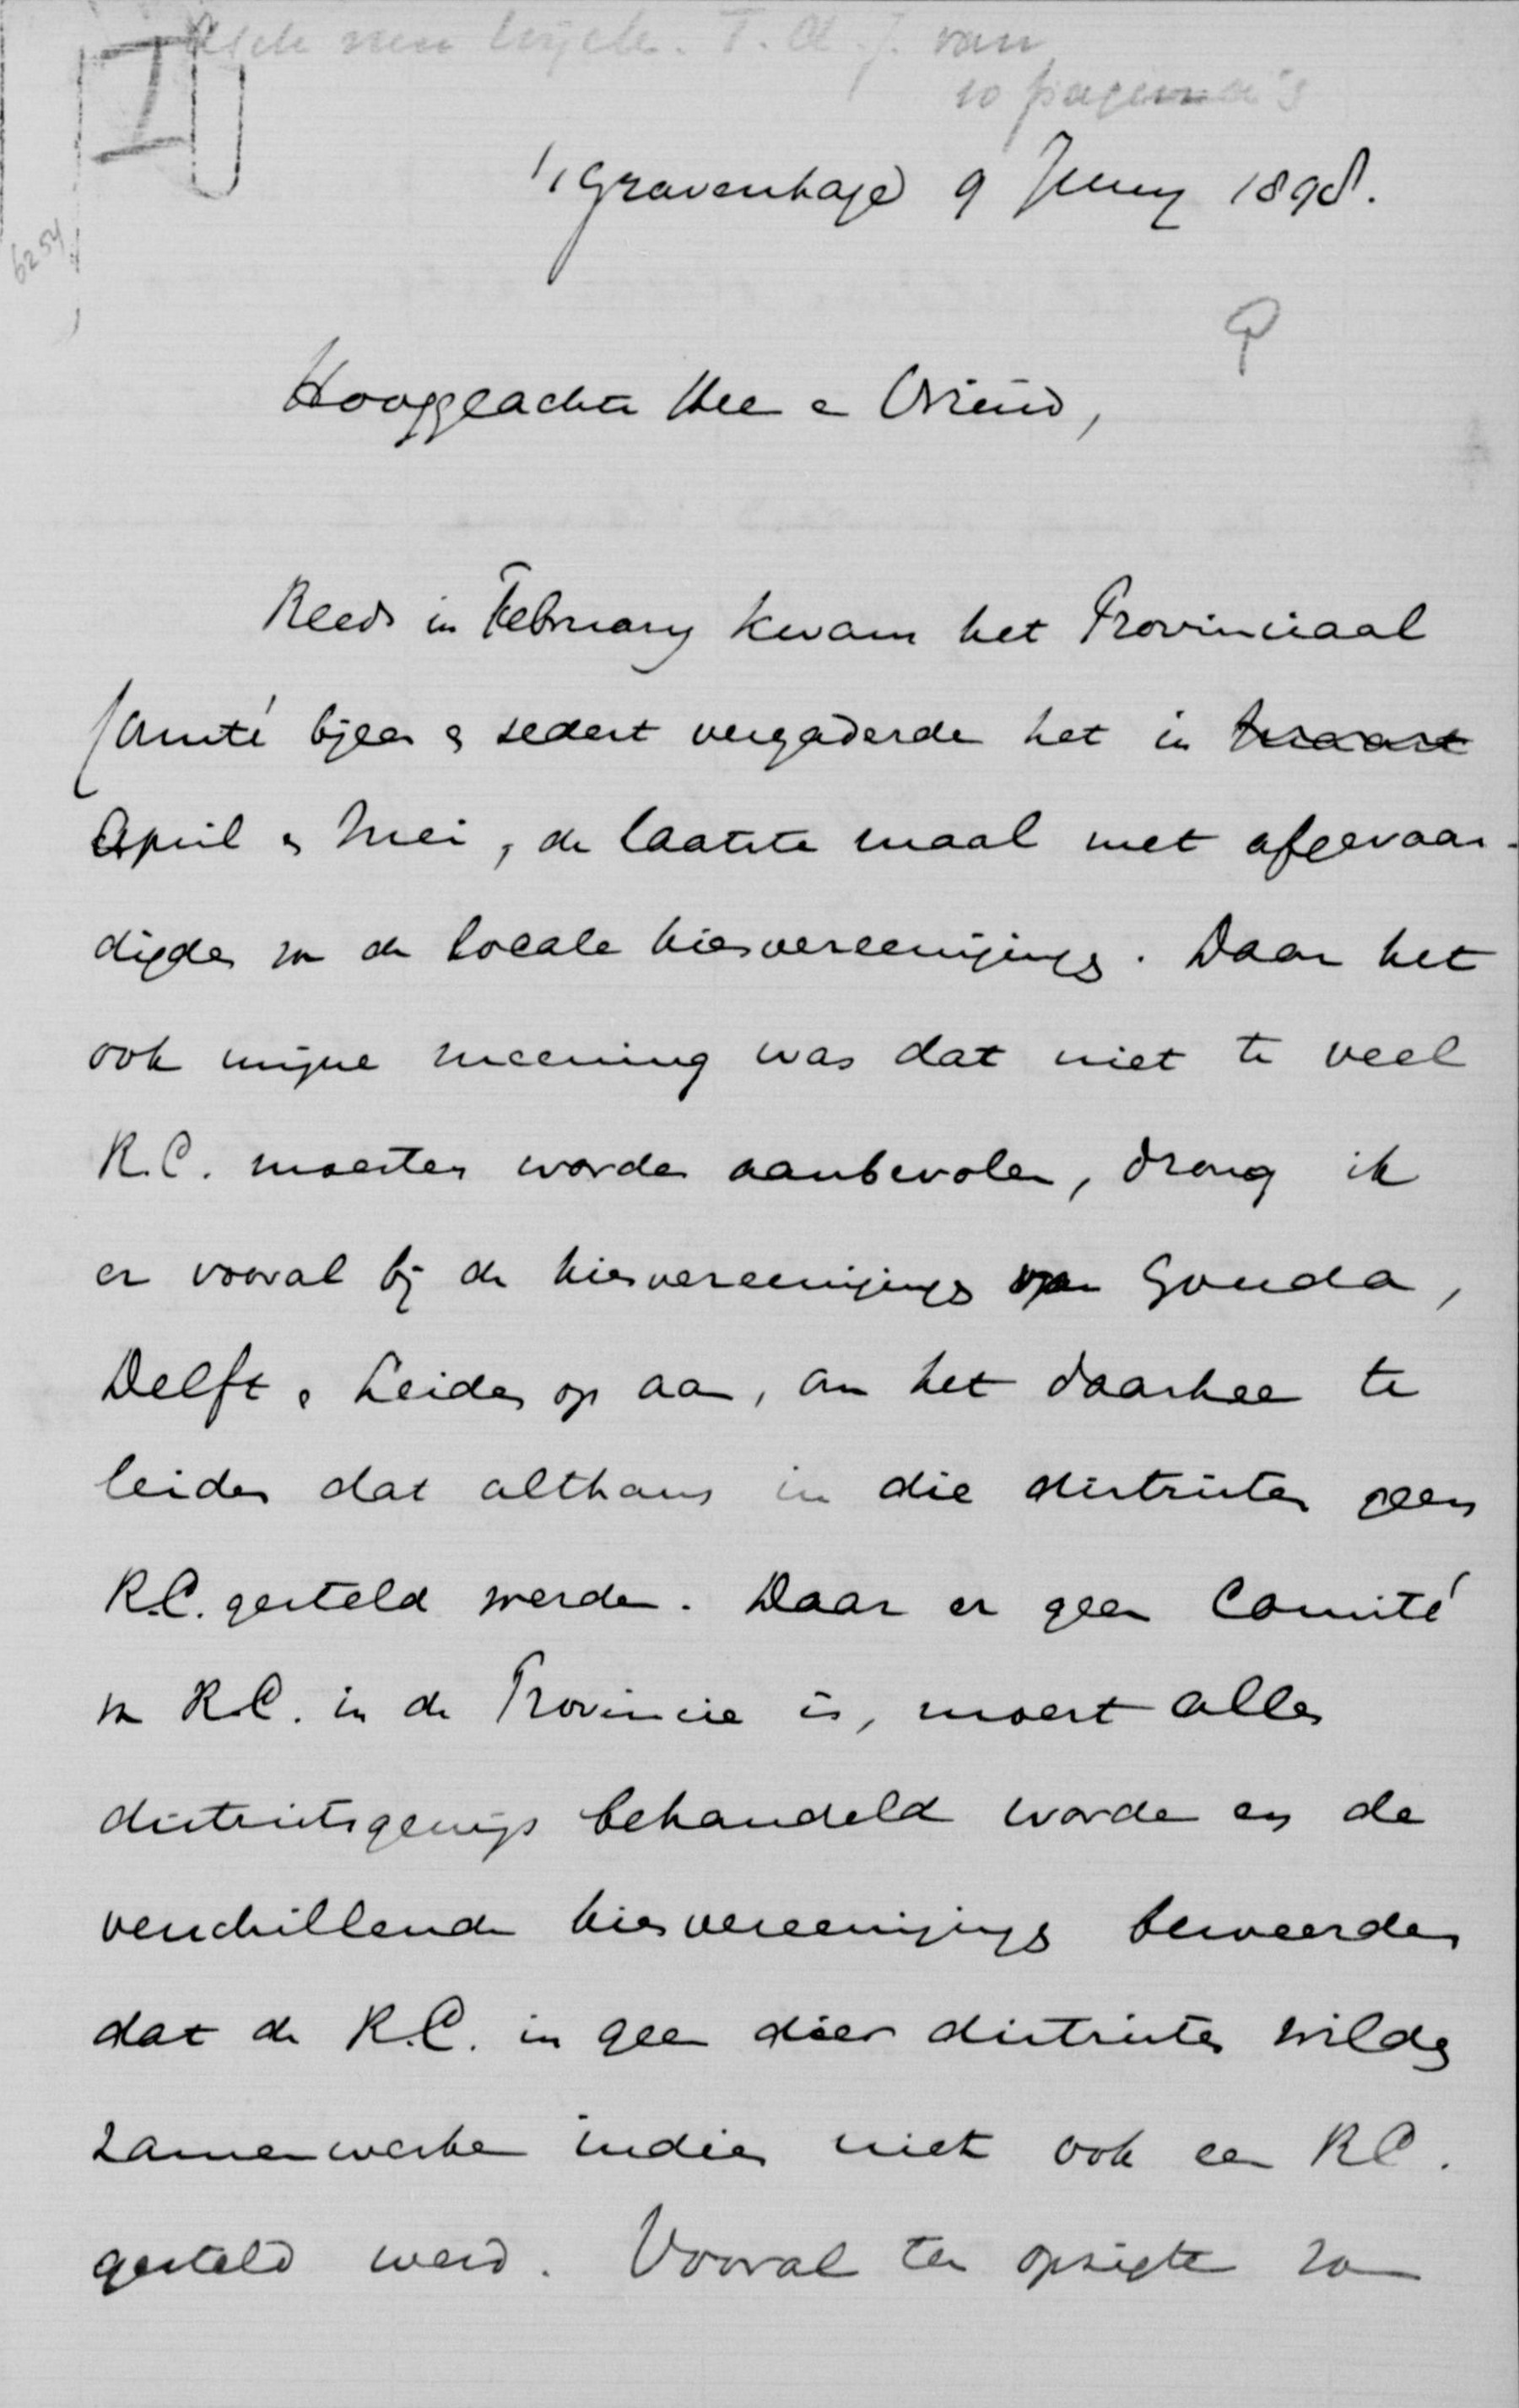 10 pagina's
's Gravenhage 9 Juny 1898.
6254
Hooggeachte Heer en Vriend,
Reeds in February kwam het Provinciaal
Comité bijeen en sedert vergaderde het in maart
April en Mei, de laatste maal met afgevaar-
digden van de locale kiesvereenigingen. Daar het
ook mijne meening was dat niet te veel
R.C. moesten worden aanbevolen, drong ik
er vooral bij de kiesvereenigingen van Gouda,
Delft en Leiden op aan, om het daarheen te
leiden dat althans in die districten geen
R.C. gesteld werden. Daar er geen Comité
van R.C. in de Provincie is, moest alles
districtsgewijs behandeld worden en de
verschillende kiesvereenigingen beweerden
dat de R.C. in geen dier districten wilden
zamenwerken indien niet ook een R.C.
gesteld werd. Vooral ten opzigte van